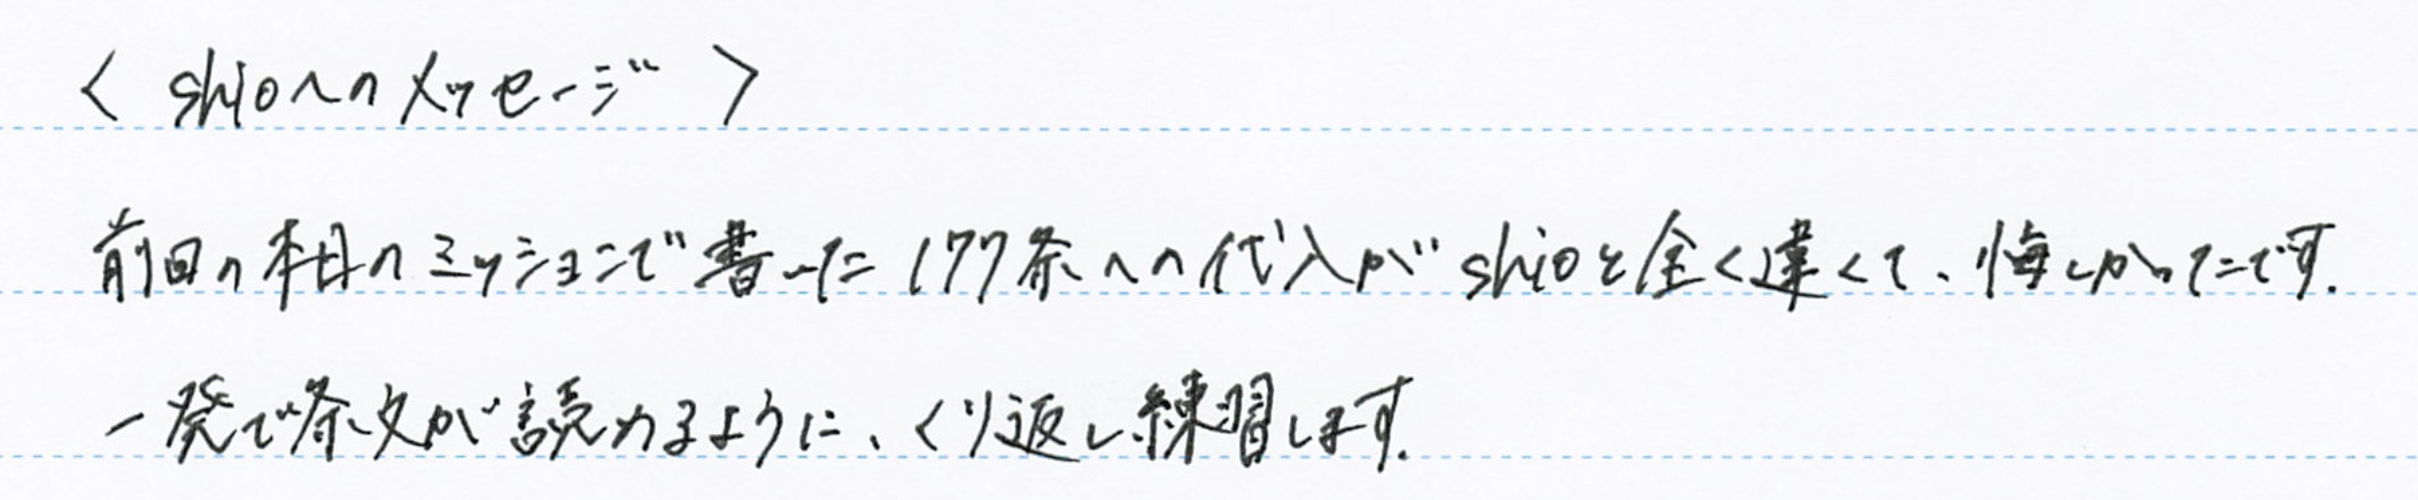 < shioへのメッセージ >
前回の本日のミッションで書いた177条への代入がshioと全く違くて、悔しかったです.
一発で条文が読めるように、くり返し練習します.